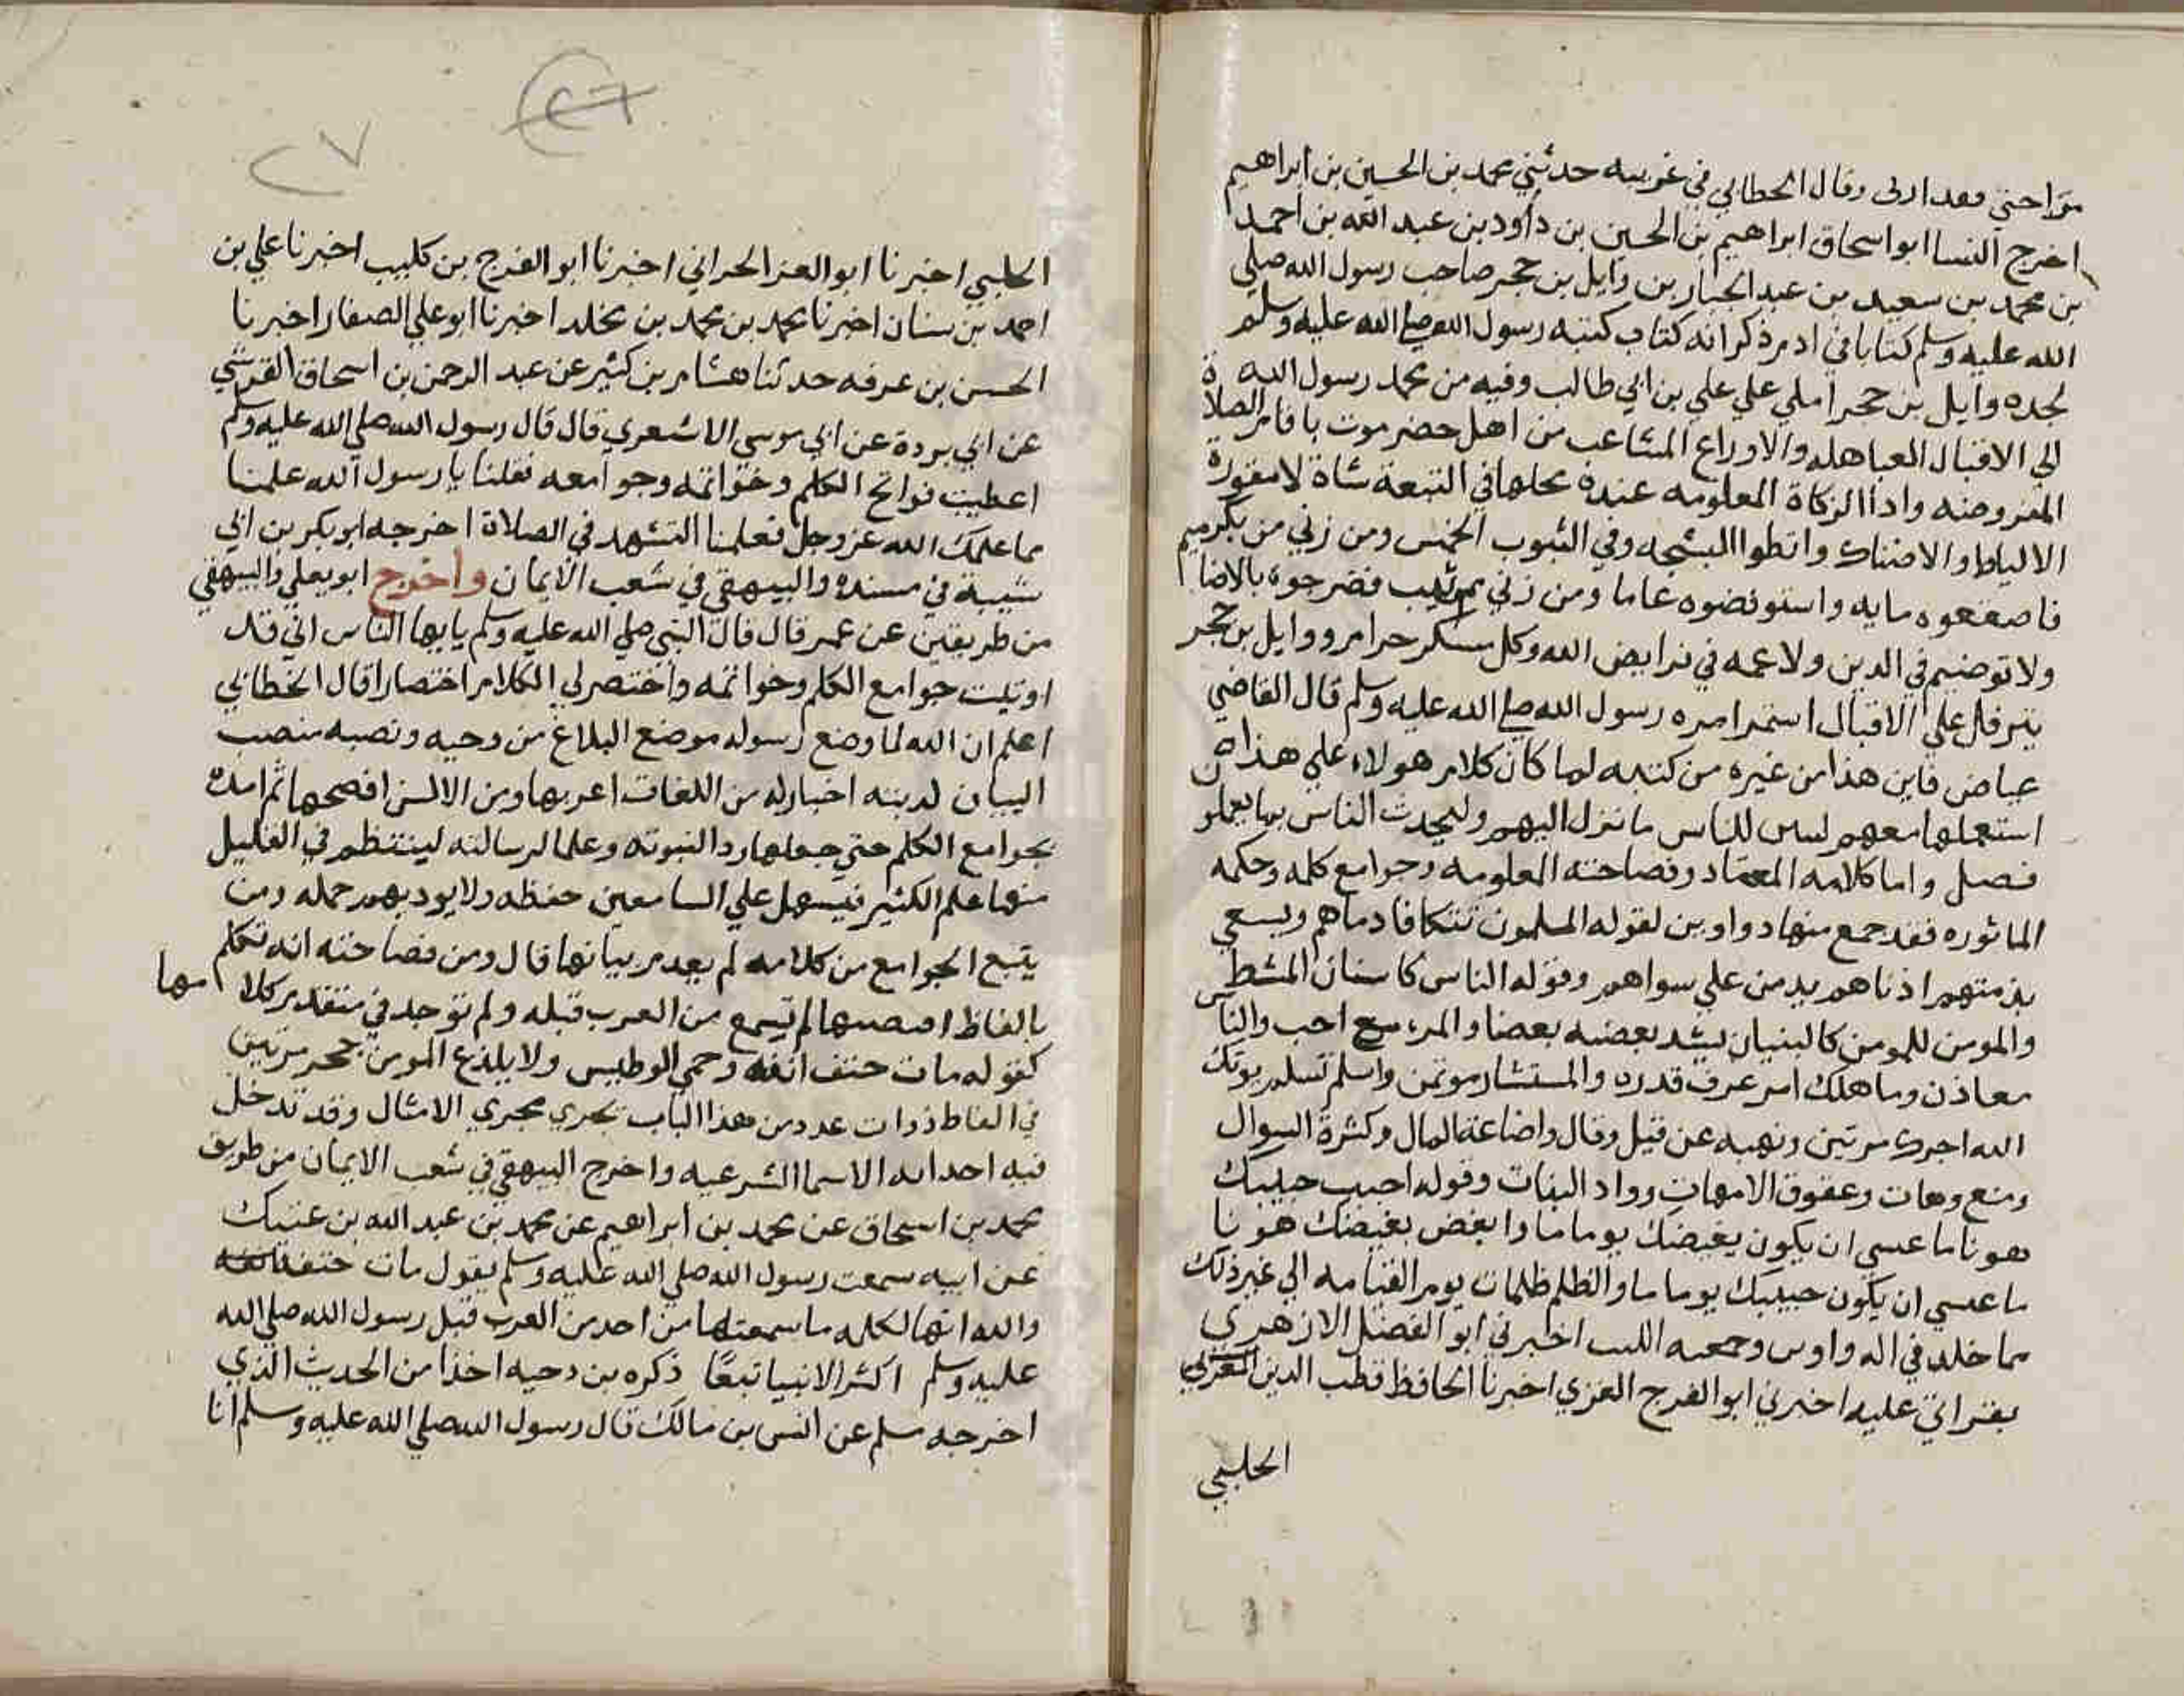 من احبني فقد اربى وقال الخطابي في غريبه حدثني محمد بن الحسين بن ابراهيم
اخرج النسا ابو اسحاق ابراهيم بن الحسين بن داود بن عبد الله بن احمد
بن محمد بن سعيد بن عبد الجبار بن وايل بن حجر صاحب رسول الله صلي
الله عليه وسلم كتابا في ادم ذكر انه كتاب كتبه رسول الله صلي الله عليه وسلم
لجده وايل بن حجر املي علي علي بن ابي طالب وفيه من محمد رسول الله
الي الاقبال العباهله والاوراع المشاعب من اهل حضرموت باقام الصلاة
المفروضه واداا الزكاة المعلومه عنده محلها في التيعة شاة لا مقورة
الالياط والاضناك وانطوا الثبجه وفي الثبوب الخمس ومن زني من بكر ميم
فاصقعوه مايه واستوفضوه عاما ومن زني مم ثيب فضرجوه بالاضاميم
ولا توصيم في الدين ولا عمه في فرايض الله وكل مسكر حرام ووايل بن حجر
يترفل علي الاقبال استمر امره رسول الله صلي الله عليه وسلم قال القاضي
عياض فاين هذا من غيره من كتبه لما كان كلام هولاء علي هذا
استعملها معهم ليبين للناس ما نزل اليهم وليحدث الناس بما يعملو ن
فصل واما كلامه المعتاد وفصاحته المعلومه وجوامع كلمه وحكمه
الماثوره فقد جمع منها دواوين لقوله المسلمون تتكافا دماهم ويسعي
بذمتهم ادناهم يد من علي سواهم وقوله الناس كاسنان المشط
والمومن للمومن كالبنيان يشد بعضه بعضا والمرء مع احب والناس
معاذن وما هلك امر عرف قدره والمستشار موتمن واسلم تسلم يوتك
الله اجرك مرتين ونهيه عن قيل وقال واضاعة المال وكثرة السوال
ومنع وهات وعقوق الامهات وواد البنات وقوله احبب حبيبك
هونا ما عسي ان يكون بغيضك يوما ما وابغض بغيضك هونا
ما عسي ان يكون حبيبك يوما ما والظلم ظلمات يوم القيامه الي غير ذلك
مما خلد في اله واوين وجمعه اخبرني ابو الفضل الازهري
بقراتي عليه اخبرني ابو الفرج الغزي اخبرنا الحافظ قطب الدين
الحلبي
٢٦
٢٧
الحلبي اخبرنا ابو العز الحراني اخبرنا ابو الفرج بن كليب اخبرنا علي بن
احمد بن سنان اخبرنا محمد بن محمد بن مخلد اخبرنا ابو علي الصفار اخبرنا
الحسن بن عرفه حدثنا هشام بن كثير عن عبد الرحمن بن اسحاق القرشي
عن ابي بردة عن ابي موسي الاشعري قال قال رسول الله صلي الله عليه وسلم
اعطيت فواتح الكلم وخواتمه وجوامعه فقلنا يا رسول الله علمنا
مما علمك الله عز وجل فعلمنا التشهد في الصلاة اخرجه ابو بكر بن ابي
شيبة في مسنده والبيهقي في شعب الايمان واخرج ابو يعلي والبيهقي
من طريقين عن عمر قال قال النبي صلي الله عليه وسلم يا يها الناس اني قد
اوتيت جوامع الكلم وخواتمه واختصر لي الكلام اختصارا قال الخطابي
اعلم ان الله لما وضع رسوله موضع البلاغ من وحيه ونصبه منصب
البيان لدينه اختار له من اللغات اعربها ومن الالسن افصحها ثم امده
بجوامع الكلم حتي جعلها ردا لنبوته وعلما لرسالته لينتظم في القليل
منها علم الكثير فيسهل علي السامعين حفظه ولا يودبهم حمله ومن
يتبع الجوامع من كلامه لم يعدم بيانها قال ومن فصاحته انه تكلم
بالفاظ لم تسمع من العرب قبله ولم توجد في متقدم كلامها
كقوله مات حتف انفه وحمي الوطيس ولا يلدغ المومن من جحر مرتين
في الفاظ ذوات عدد من هذا الباب تجري مجري الامثال وقد تدخل
فيه احداثه الاسما الشرعيه واخرج البيهقي في شعب الايمان من طريق
محمد بن اسحاق عن محمد بن ابراهيم عن محمد بن عبد الله بن عتيك
عن ابيه سمعت رسول الله صلي الله عليه وسلم يقول مات حتف انفه
والله انها لكلمه ما سمعتها من احد من العرب قبل رسول الله صلي الله
عليه وسلم اكثر الانبيا تبعًا ذكره بن دحيه اخذا من الحديث الذي
اخرجه مسلم عن انس بن مالك قال رسول الله صلي الله عليه وسلم انا